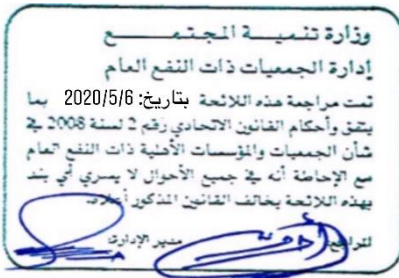 وزارة تنمية المجتمع
إدارة الجمعيات ذات النفع العام
تمت مراجعة هذه اللائحة بتاريخ: 2020/5/6 بما
يتفق وأحكام القانون الاتحادي رقم 2 لسنة 2008 في
شأن الجمعيات والمؤسسات الأهلية ذات النفع العام
مع الإحاطة أنه في جميع الأحوال لا يسري أي بند
بهذه اللائحة يخالف القانون المذكور أعلاه.
المراجع: مدير الإدارة: